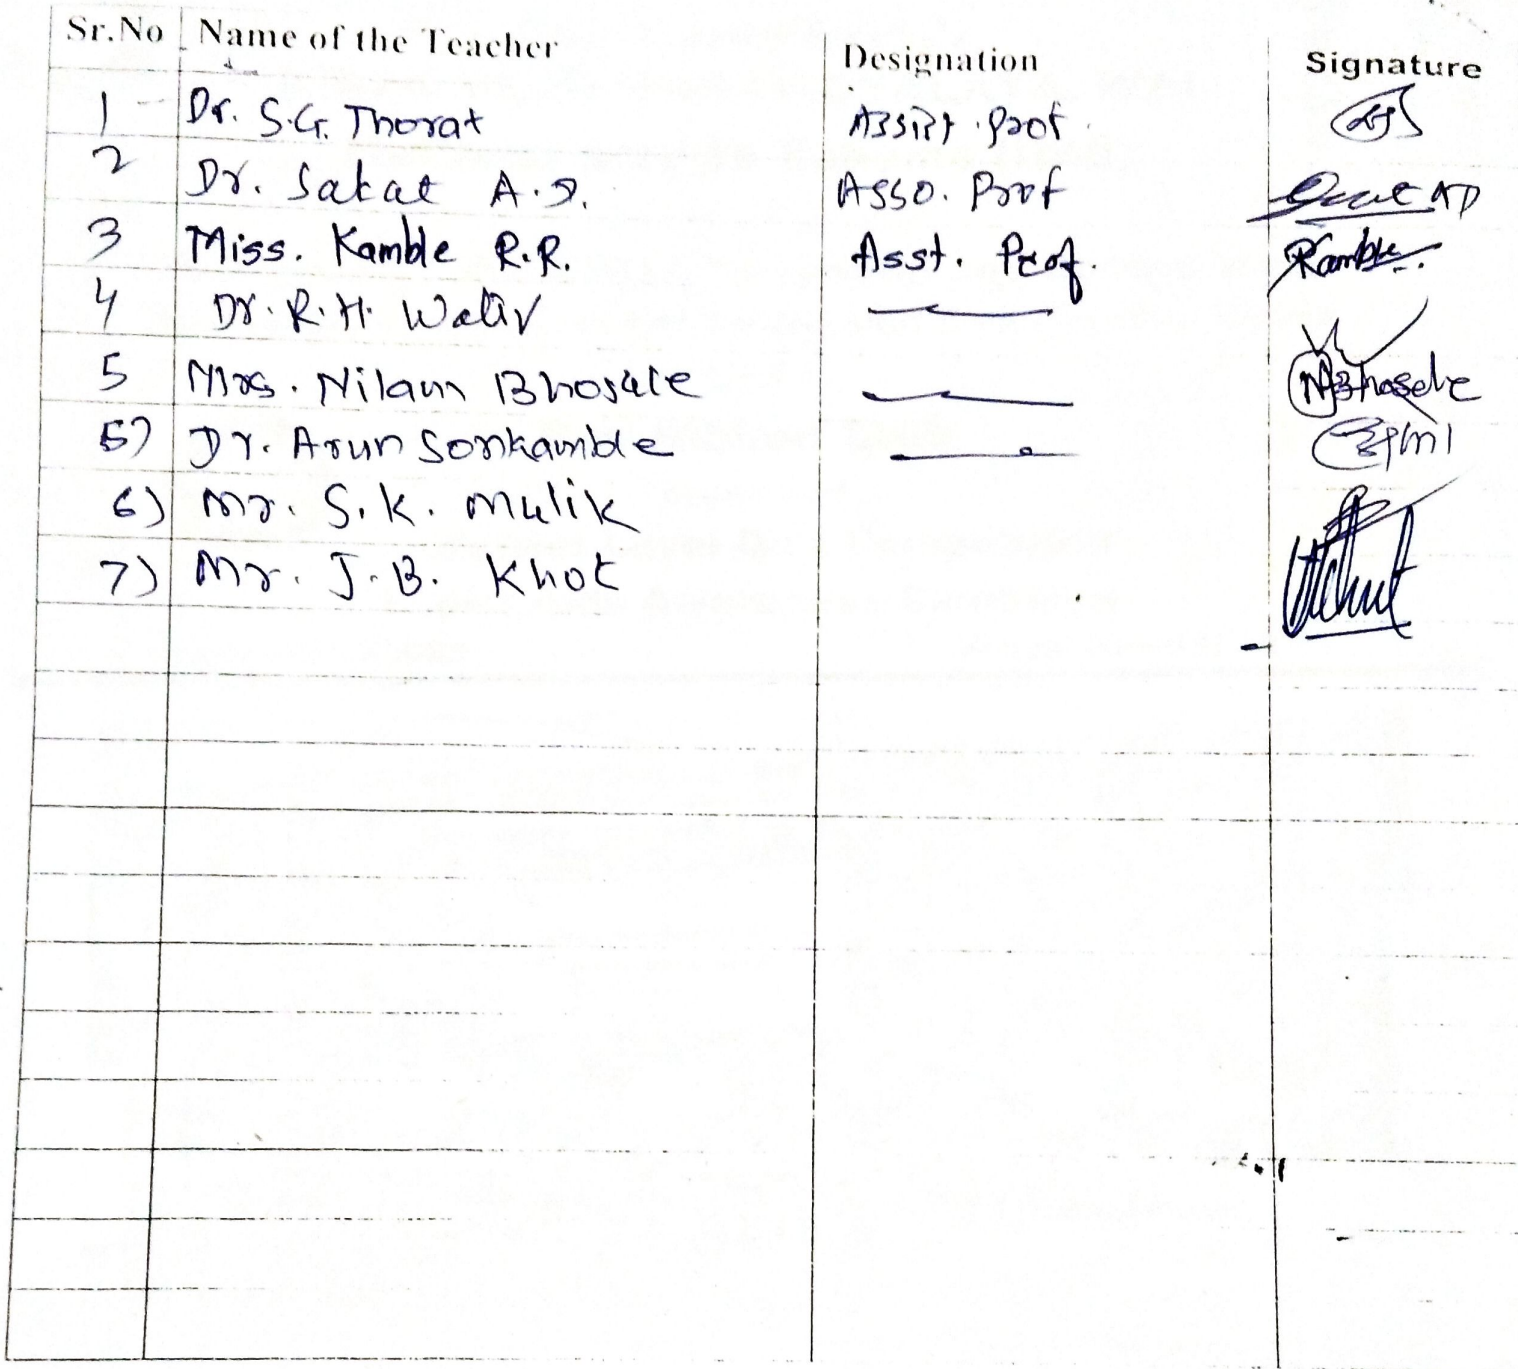 Sr.No Name of the Teacher Designation Signature
1 Dr. S.G. Thorat Assist. prof.
2 Dr. Sakat A.D. Asso. Prof AD
3 Miss. Kamble R.R. Asst. Prof. Kamble
4 Dr. R.H. Waliv
5 Mrs. Nilam Bhosale NBhosale
5) Dr. Arun Sonkamble
6) Mr. S.K. Mulik
7) Mr. J.B. Khot